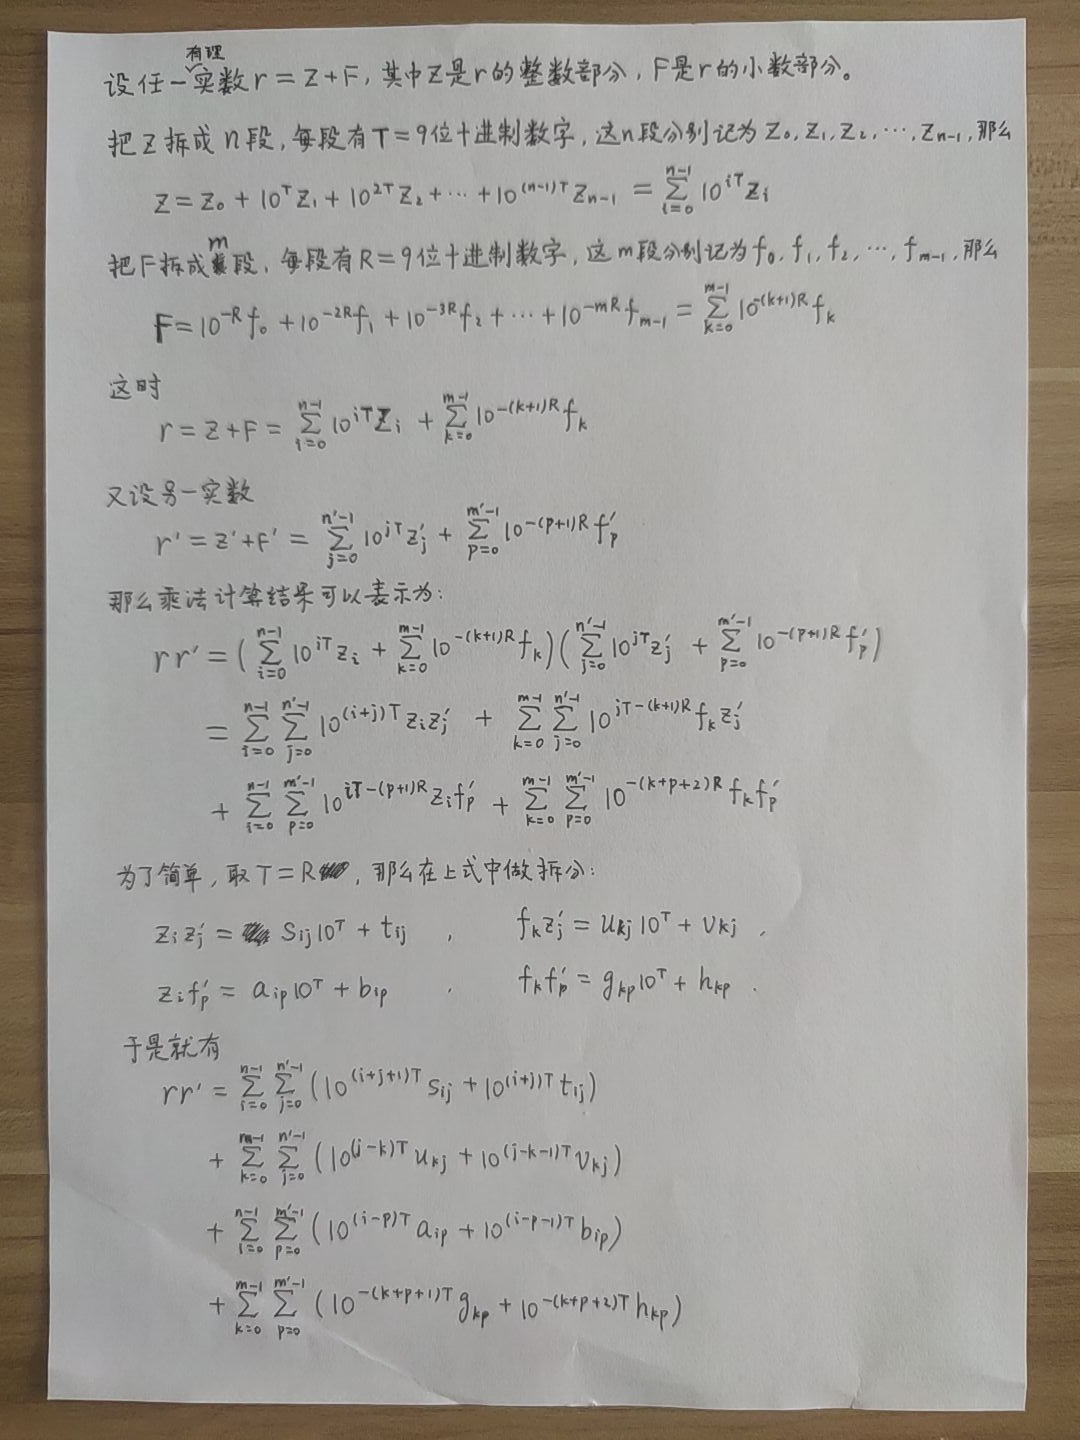 设任一有理实数 r = Z + F, 其中Z是r的整数部分, F是r的小数部分。
把Z拆成n段, 每段有T=9位十进制数字, 这n段分别记为 Z₀, Z₁, Z₂, ⋯, Zₙ₋₁, 那么
Z = Z₀ + 10^T Z₁ + 10^{2T} Z₂ + ⋯ + 10^{(n-1)T} Z_{n-1} = \sum_{i=0}^{n-1} 10^{iT} Z_i
把F拆成m段, 每段有R=9位十进制数字, 这m段分别记为 f₀, f₁, f₂, ⋯, f_{m-1}, 那么
F = 10^{-R} f₀ + 10^{-2R} f₁ + 10^{-3R} f₂ + ⋯ + 10^{-mR} f_{m-1} = \sum_{k=0}^{m-1} 10^{-(k+1)R} f_k
这时
r = Z + F = \sum_{i=0}^{n-1} 10^{iT} Z_i + \sum_{k=0}^{m-1} 10^{-(k+1)R} f_k
又设另一实数
r' = Z' + F' = \sum_{j=0}^{n'-1} 10^{jT} Z'_j + \sum_{p=0}^{m'-1} 10^{-(p+1)R} f'_p
那么乘法计算结果可以表示为:
rr' = ( \sum_{i=0}^{n-1} 10^{iT} Z_i + \sum_{k=0}^{m-1} 10^{-(k+1)R} f_k )( \sum_{j=0}^{n'-1} 10^{jT} Z'_j + \sum_{p=0}^{m'-1} 10^{-(p+1)R} f'_p )
= \sum_{i=0}^{n-1} \sum_{j=0}^{n'-1} 10^{(i+j)T} Z_i Z'_j + \sum_{k=0}^{m-1} \sum_{j=0}^{n'-1} 10^{jT-(k+1)R} f_k Z'_j
+ \sum_{i=0}^{n-1} \sum_{p=0}^{m'-1} 10^{iT-(p+1)R} Z_i f'_p + \sum_{k=0}^{m-1} \sum_{p=0}^{m'-1} 10^{-(k+p+2)R} f_k f'_p
为了简单, 取T=R, 那么在上式中做拆分:
Z_i Z'_j = S_{ij} 10^T + t_{ij} , f_k Z'_j = u_{kj} 10^T + v_{kj} ,
Z_i f'_p = a_{ip} 10^T + b_{ip} , f_k f'_p = g_{kp} 10^T + h_{kp} .
于是就有
rr' = \sum_{i=0}^{n-1} \sum_{j=0}^{n'-1} (10^{(i+j+1)T} S_{ij} + 10^{(i+j)T} t_{ij})
+ \sum_{k=0}^{m-1} \sum_{j=0}^{n'-1} (10^{(j-k)T} u_{kj} + 10^{(j-k-1)T} v_{kj})
+ \sum_{i=0}^{n-1} \sum_{p=0}^{m'-1} (10^{(i-p)T} a_{ip} + 10^{(i-p-1)T} b_{ip})
+ \sum_{k=0}^{m-1} \sum_{p=0}^{m'-1} (10^{-(k+p+1)T} g_{kp} + 10^{-(k+p+2)T} h_{kp})